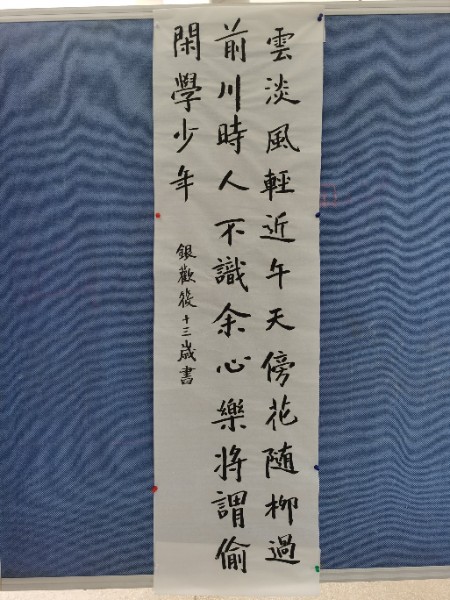 雲淡風輕近午天傍花随柳過
前川時人不識余心樂將謂偷
閑學少年
銀歡筱十三歲書